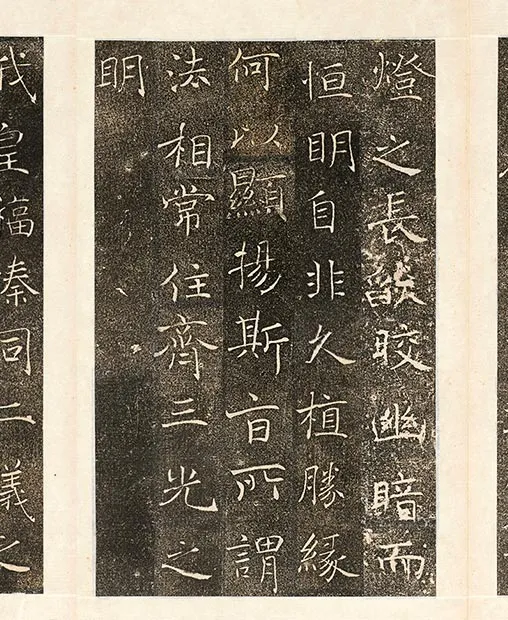 燈之長燄晈幽暗而
恒明自非久植勝緣
何以顯揚斯旨所謂
法相常住齊三光之
明
我皇福臻同二儀之